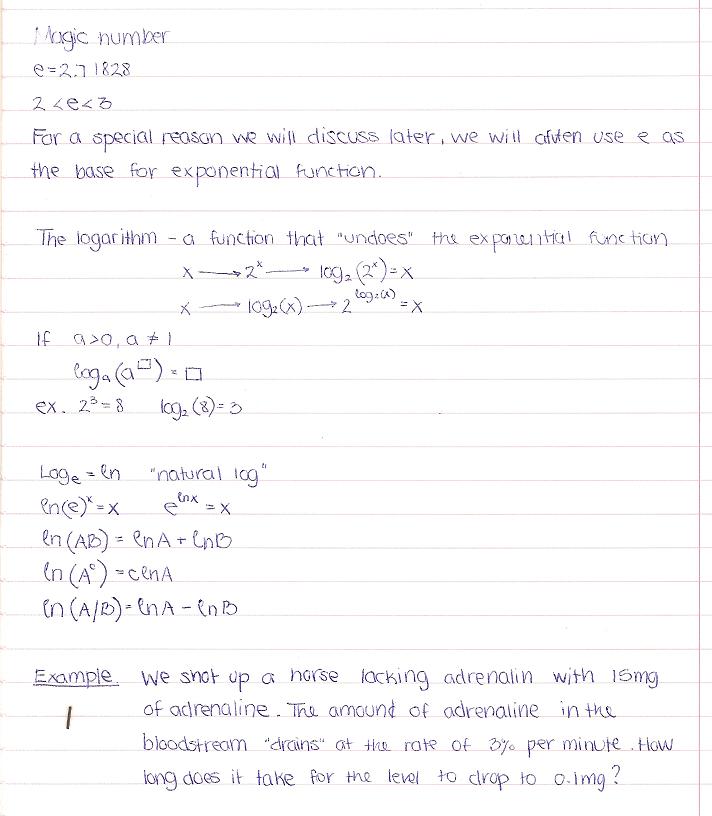 Magic number
e=2.71828
2<e<3
For a special reason we will discuss later, we will often use e as
the base for exponential function.
The logarithm - a function that "undoes" the exponential function
x → 2ˣ → log₂(2ˣ)=x
x → log₂(x) → 2^log₂(x) = x
If a>0, a ≠ 1
logₐ(a^□) = □
ex. 2³=8 log₂(8)=3
Logₑ = ln "natural log"
ln(e)ˣ=x e^lnx = x
ln(AB) = lnA + lnB
ln(Aᶜ) = clnA
ln(A/B) = lnA - lnB
Example We shot up a horse lacking adrenalin with 15mg
1 of adrenaline. The amound of adrenaline in the
bloodstream "drains" at the rate of 3% per minute. How
long does it take for the level to drop to 0.1mg?